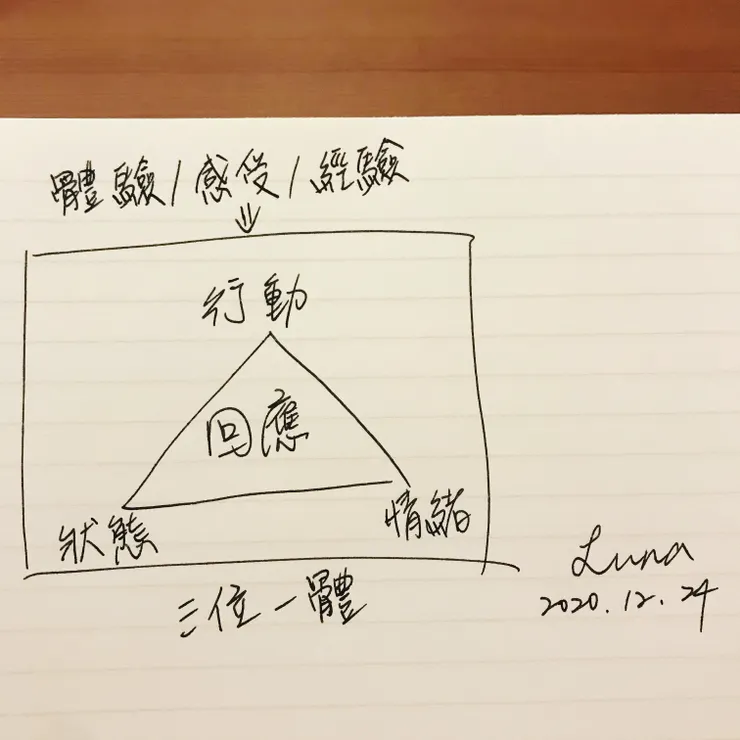 體驗/感受/經驗
行動
回應
狀態
情緒
三位一體
Luna
2020.12.24